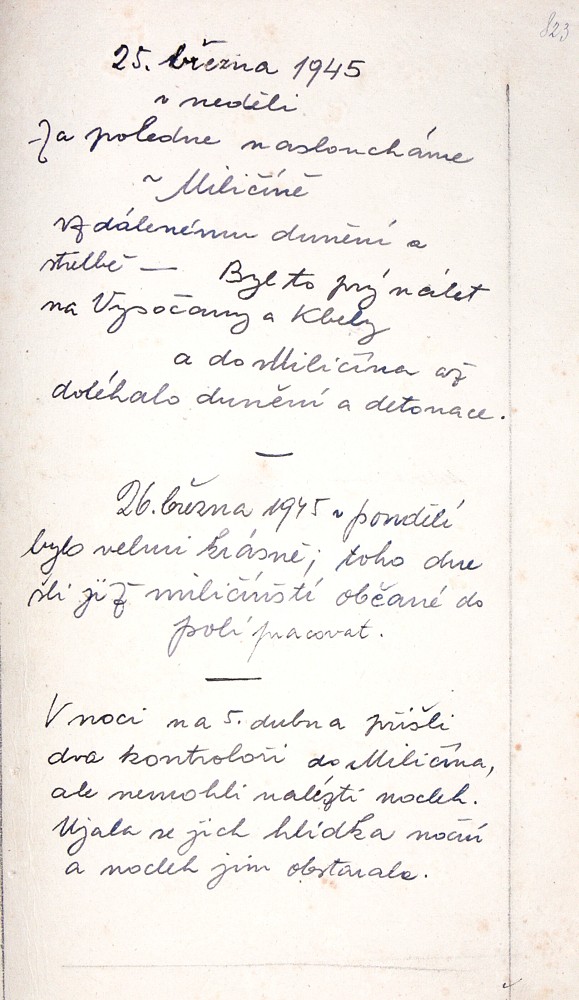 823
25. března 1945
v neděli
Za poledne nasloucháme
v Miličíně
vzdálenému dunění a
střelbě — Byl to prý nálet
na Vysočany a Kbely
a do Miličína až
doléhalo dunění a detonace.
—
26. března 1945 v pondělí
bylo velmi krásně; toho dne
šli již miličínští občané do
polí pracovat.
—
V noci na 5. dubna přišli
dva kontroloři do Miličína,
ale nemohli nalézti nocleh.
Ujala se jich hlídka noční
a nocleh jim obstarala.